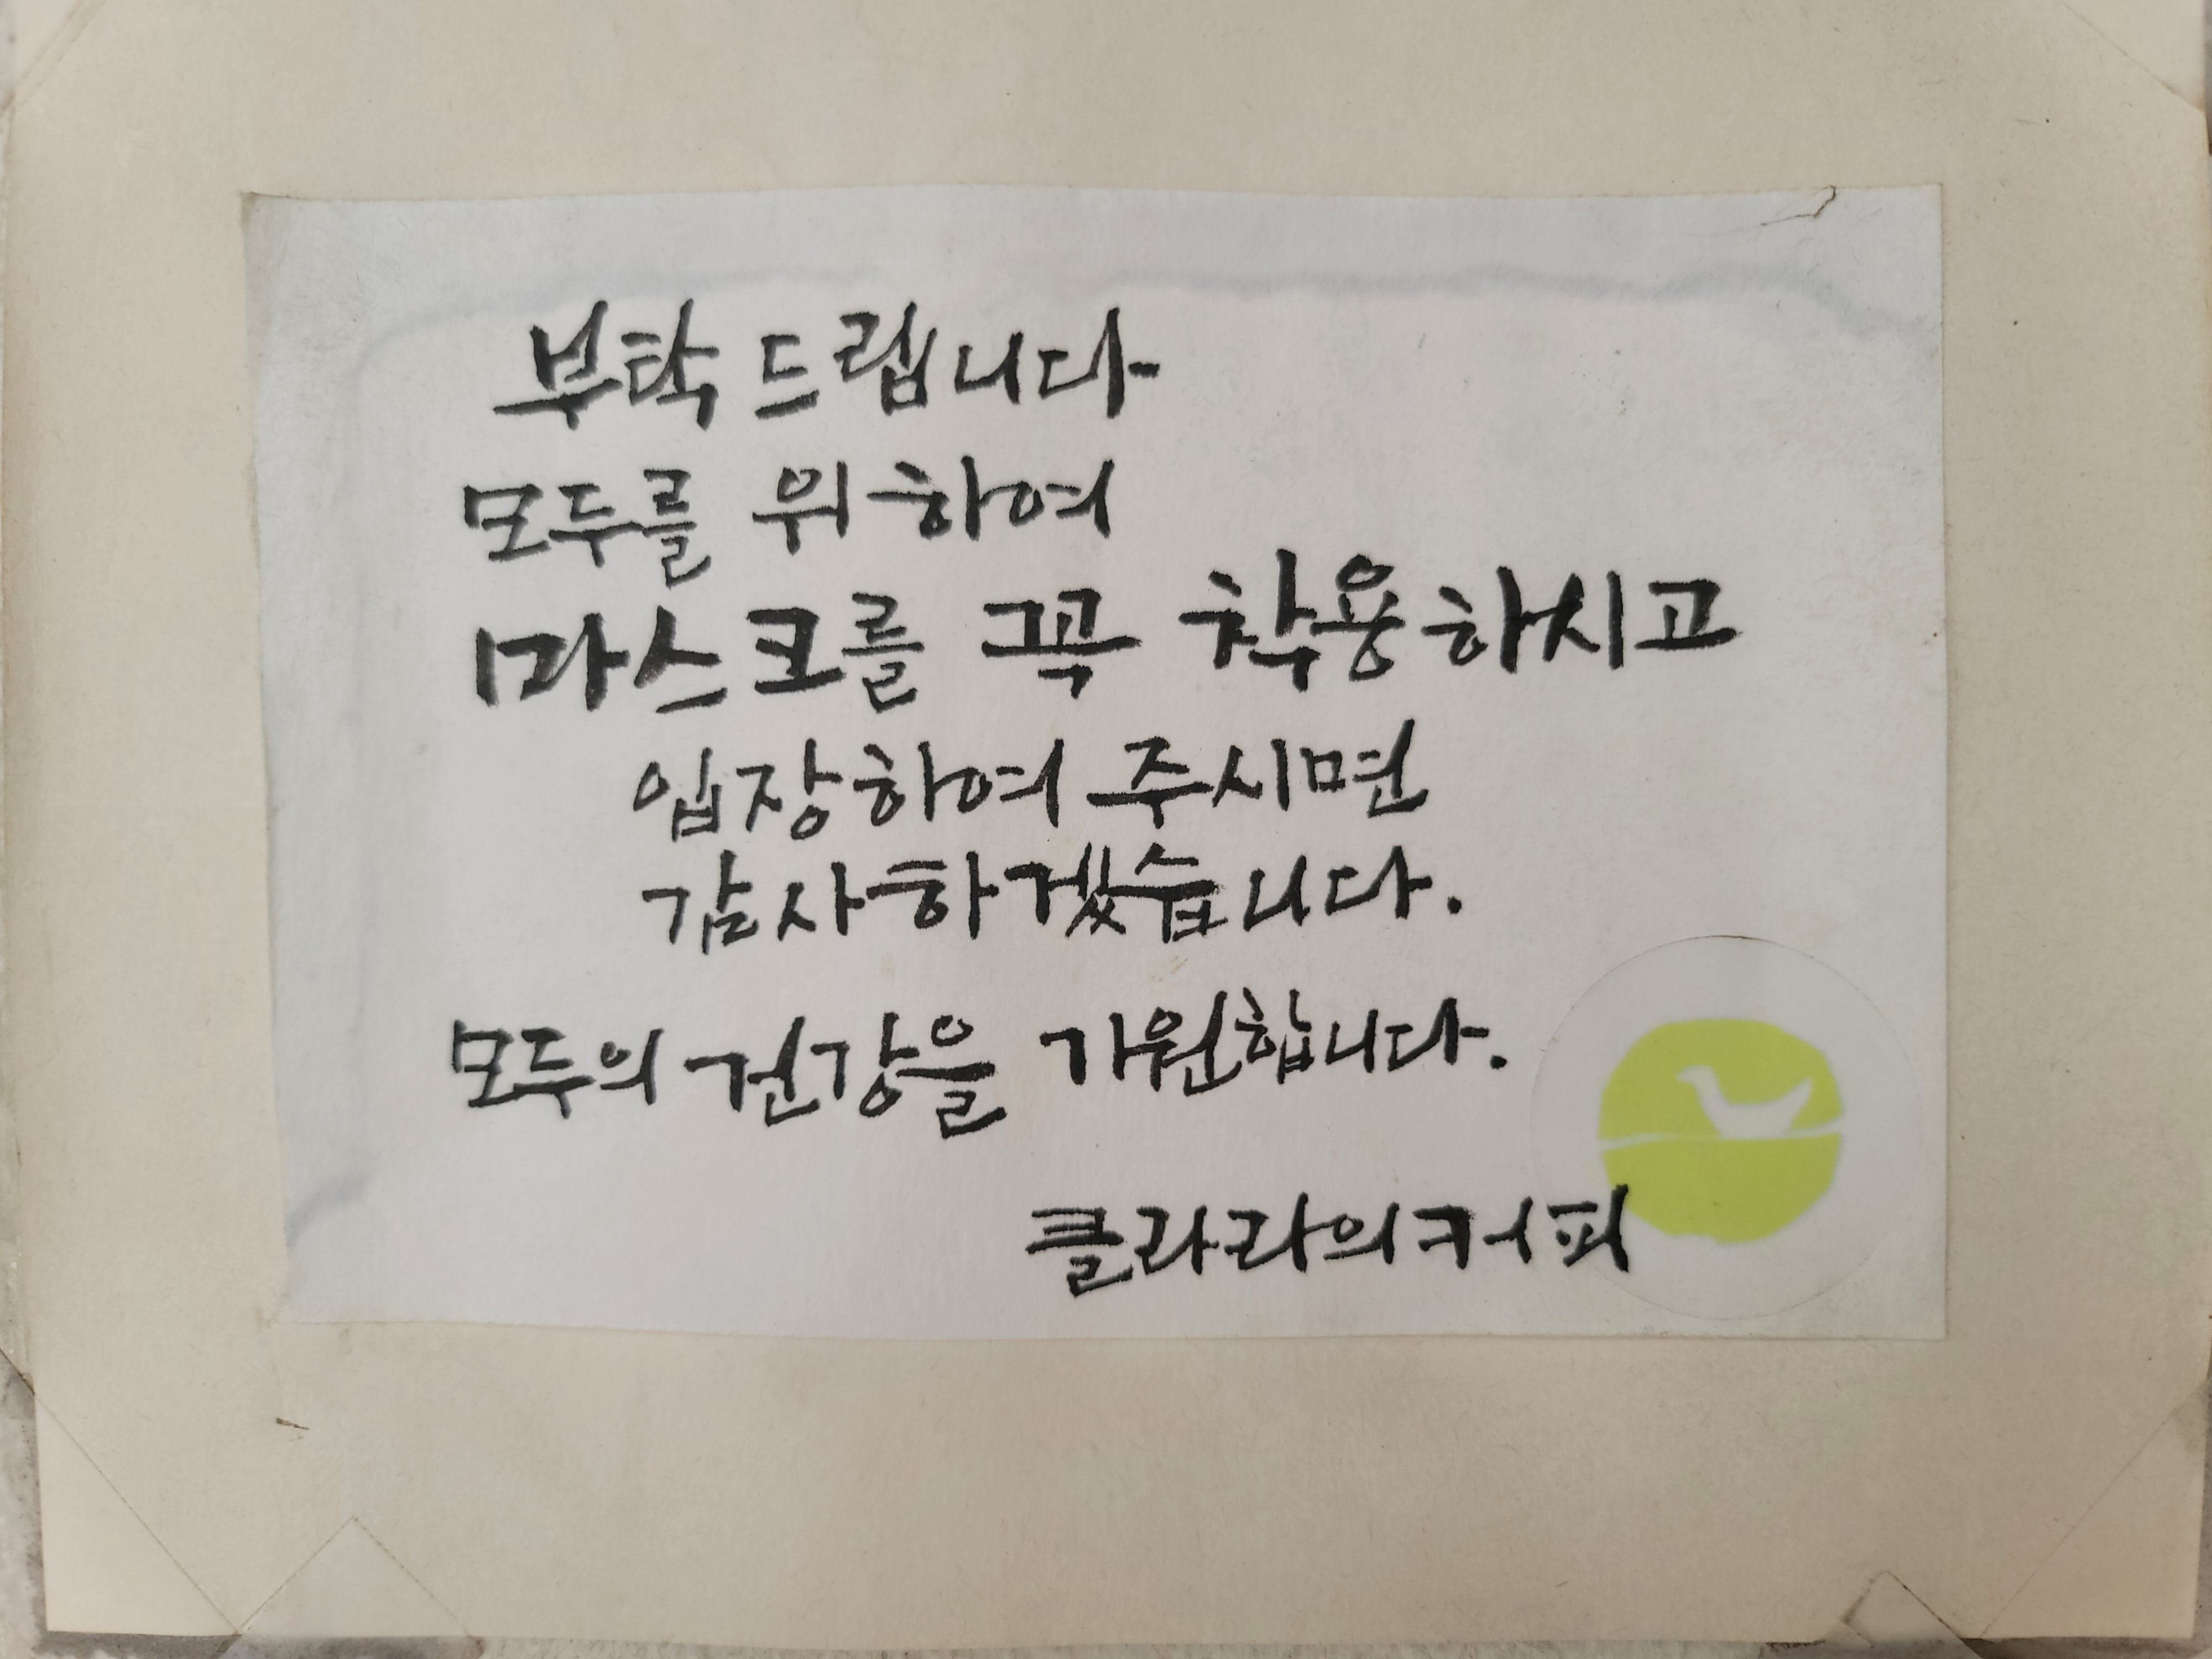 부탁드립니다
모두를 위하여
마스크를 꼭 착용하시고
입장하여 주시면
감사하겠습니다.
모두의 건강을 기원합니다.
클라라의커피